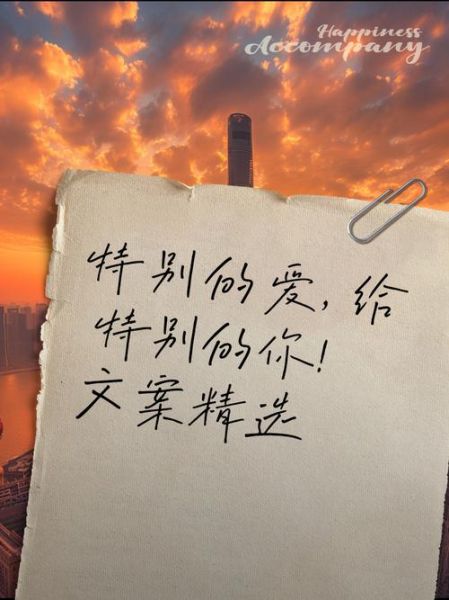 Happiness
Accompany
特别的爱,给
特别的你!
文案精选